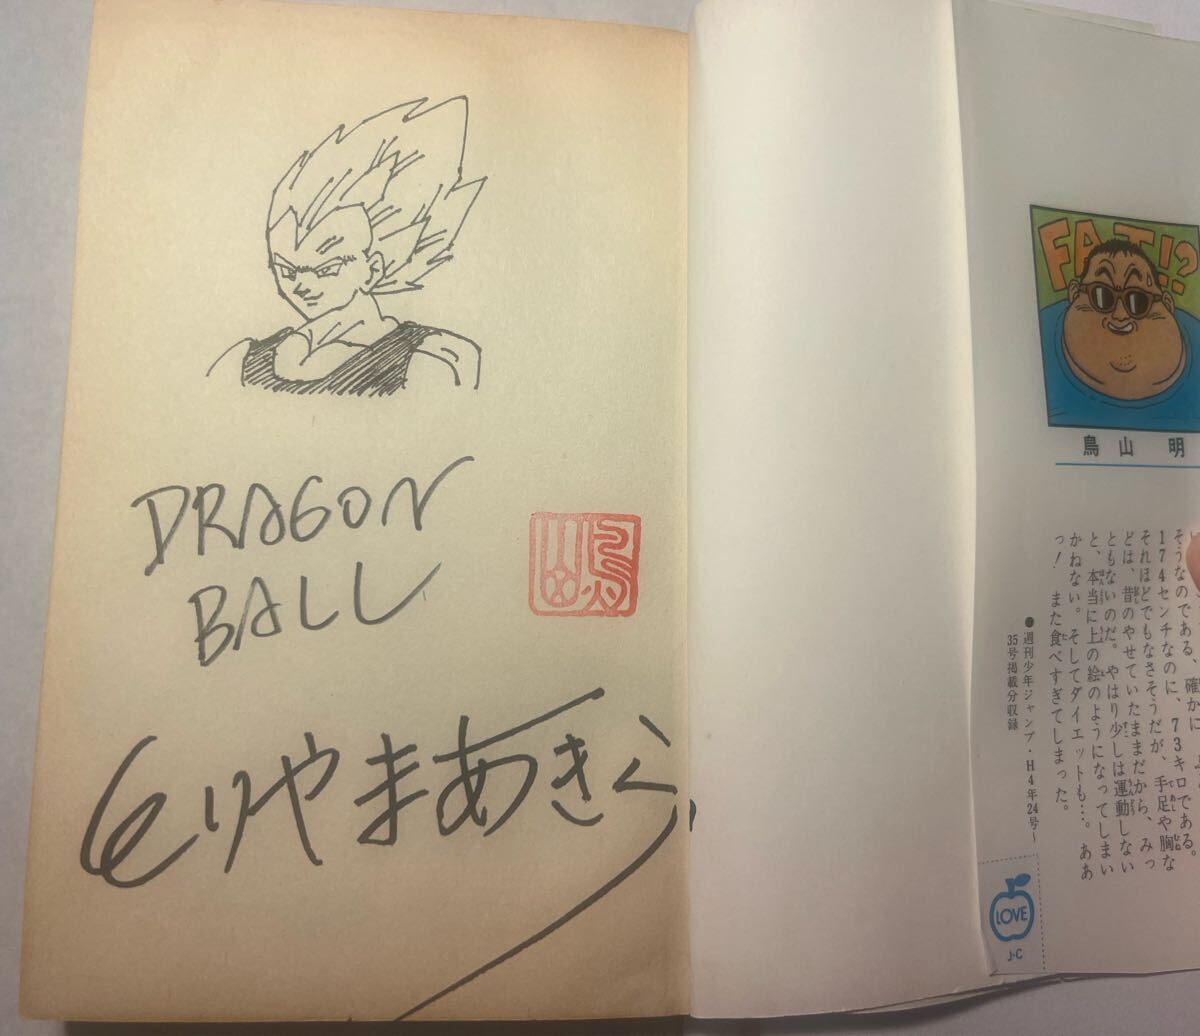 DRAGON
BALL
とりやまあきら
FAT!?
鳥山 明
そうなのである、確かに
174センチなのに、73キロである。
それほどでもなさそうだが、手足や胸な
どは、昔のやせていたままだから、みっ
ともないのだ。やはり少しは運動しない
と、本当に上の絵のようになってしまい
かねない。そしてダイエットも…。ああ
っ! また食べすぎてしまった。
●週刊少年ジャンプ・H4年24号〜
35号掲載分収録
LOVE
J・C